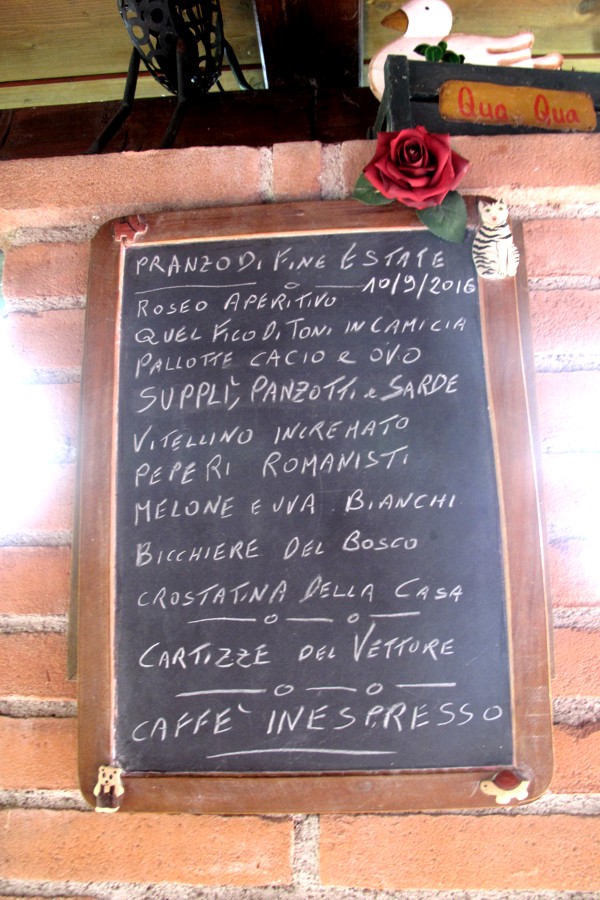 Qua Qua
PRANZO DI FINE ESTATE
10/9/2016
ROSEO APERITIVO
QUEL FICO DI TONI IN CAMICIA
PALLOTTE CACIO e OVO
SUPPLÌ, PANZOTTI e SARDE
VITELLINO INCREMATO
PEPERI ROMANISTI
MELONE E UVA BIANCHI
BICCHIERE DEL BOSCO
CROSTATINA DELLA CASA
CARTIZZE DEL VETTORE
CAFFE' INESPRESSO